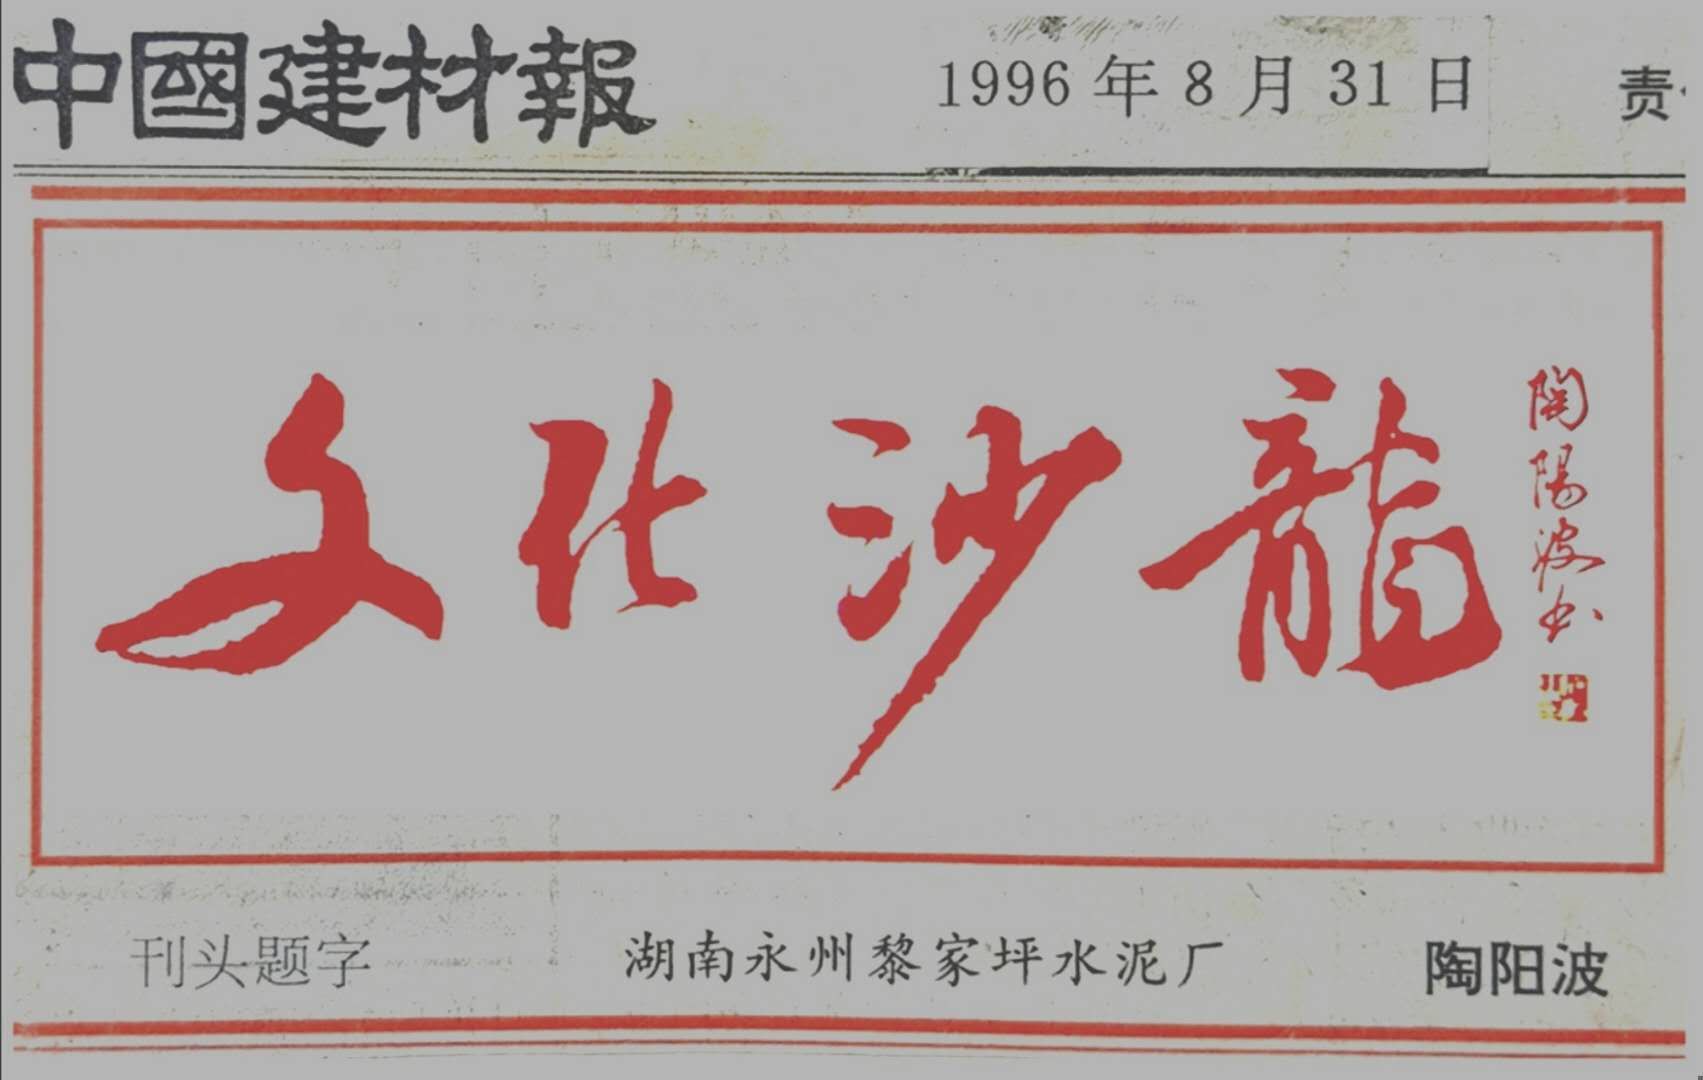 中國建材報 1996年8月31日 责
文化沙龍
陶陽波书
刊头题字 湖南永州黎家坪水泥厂 陶阳波